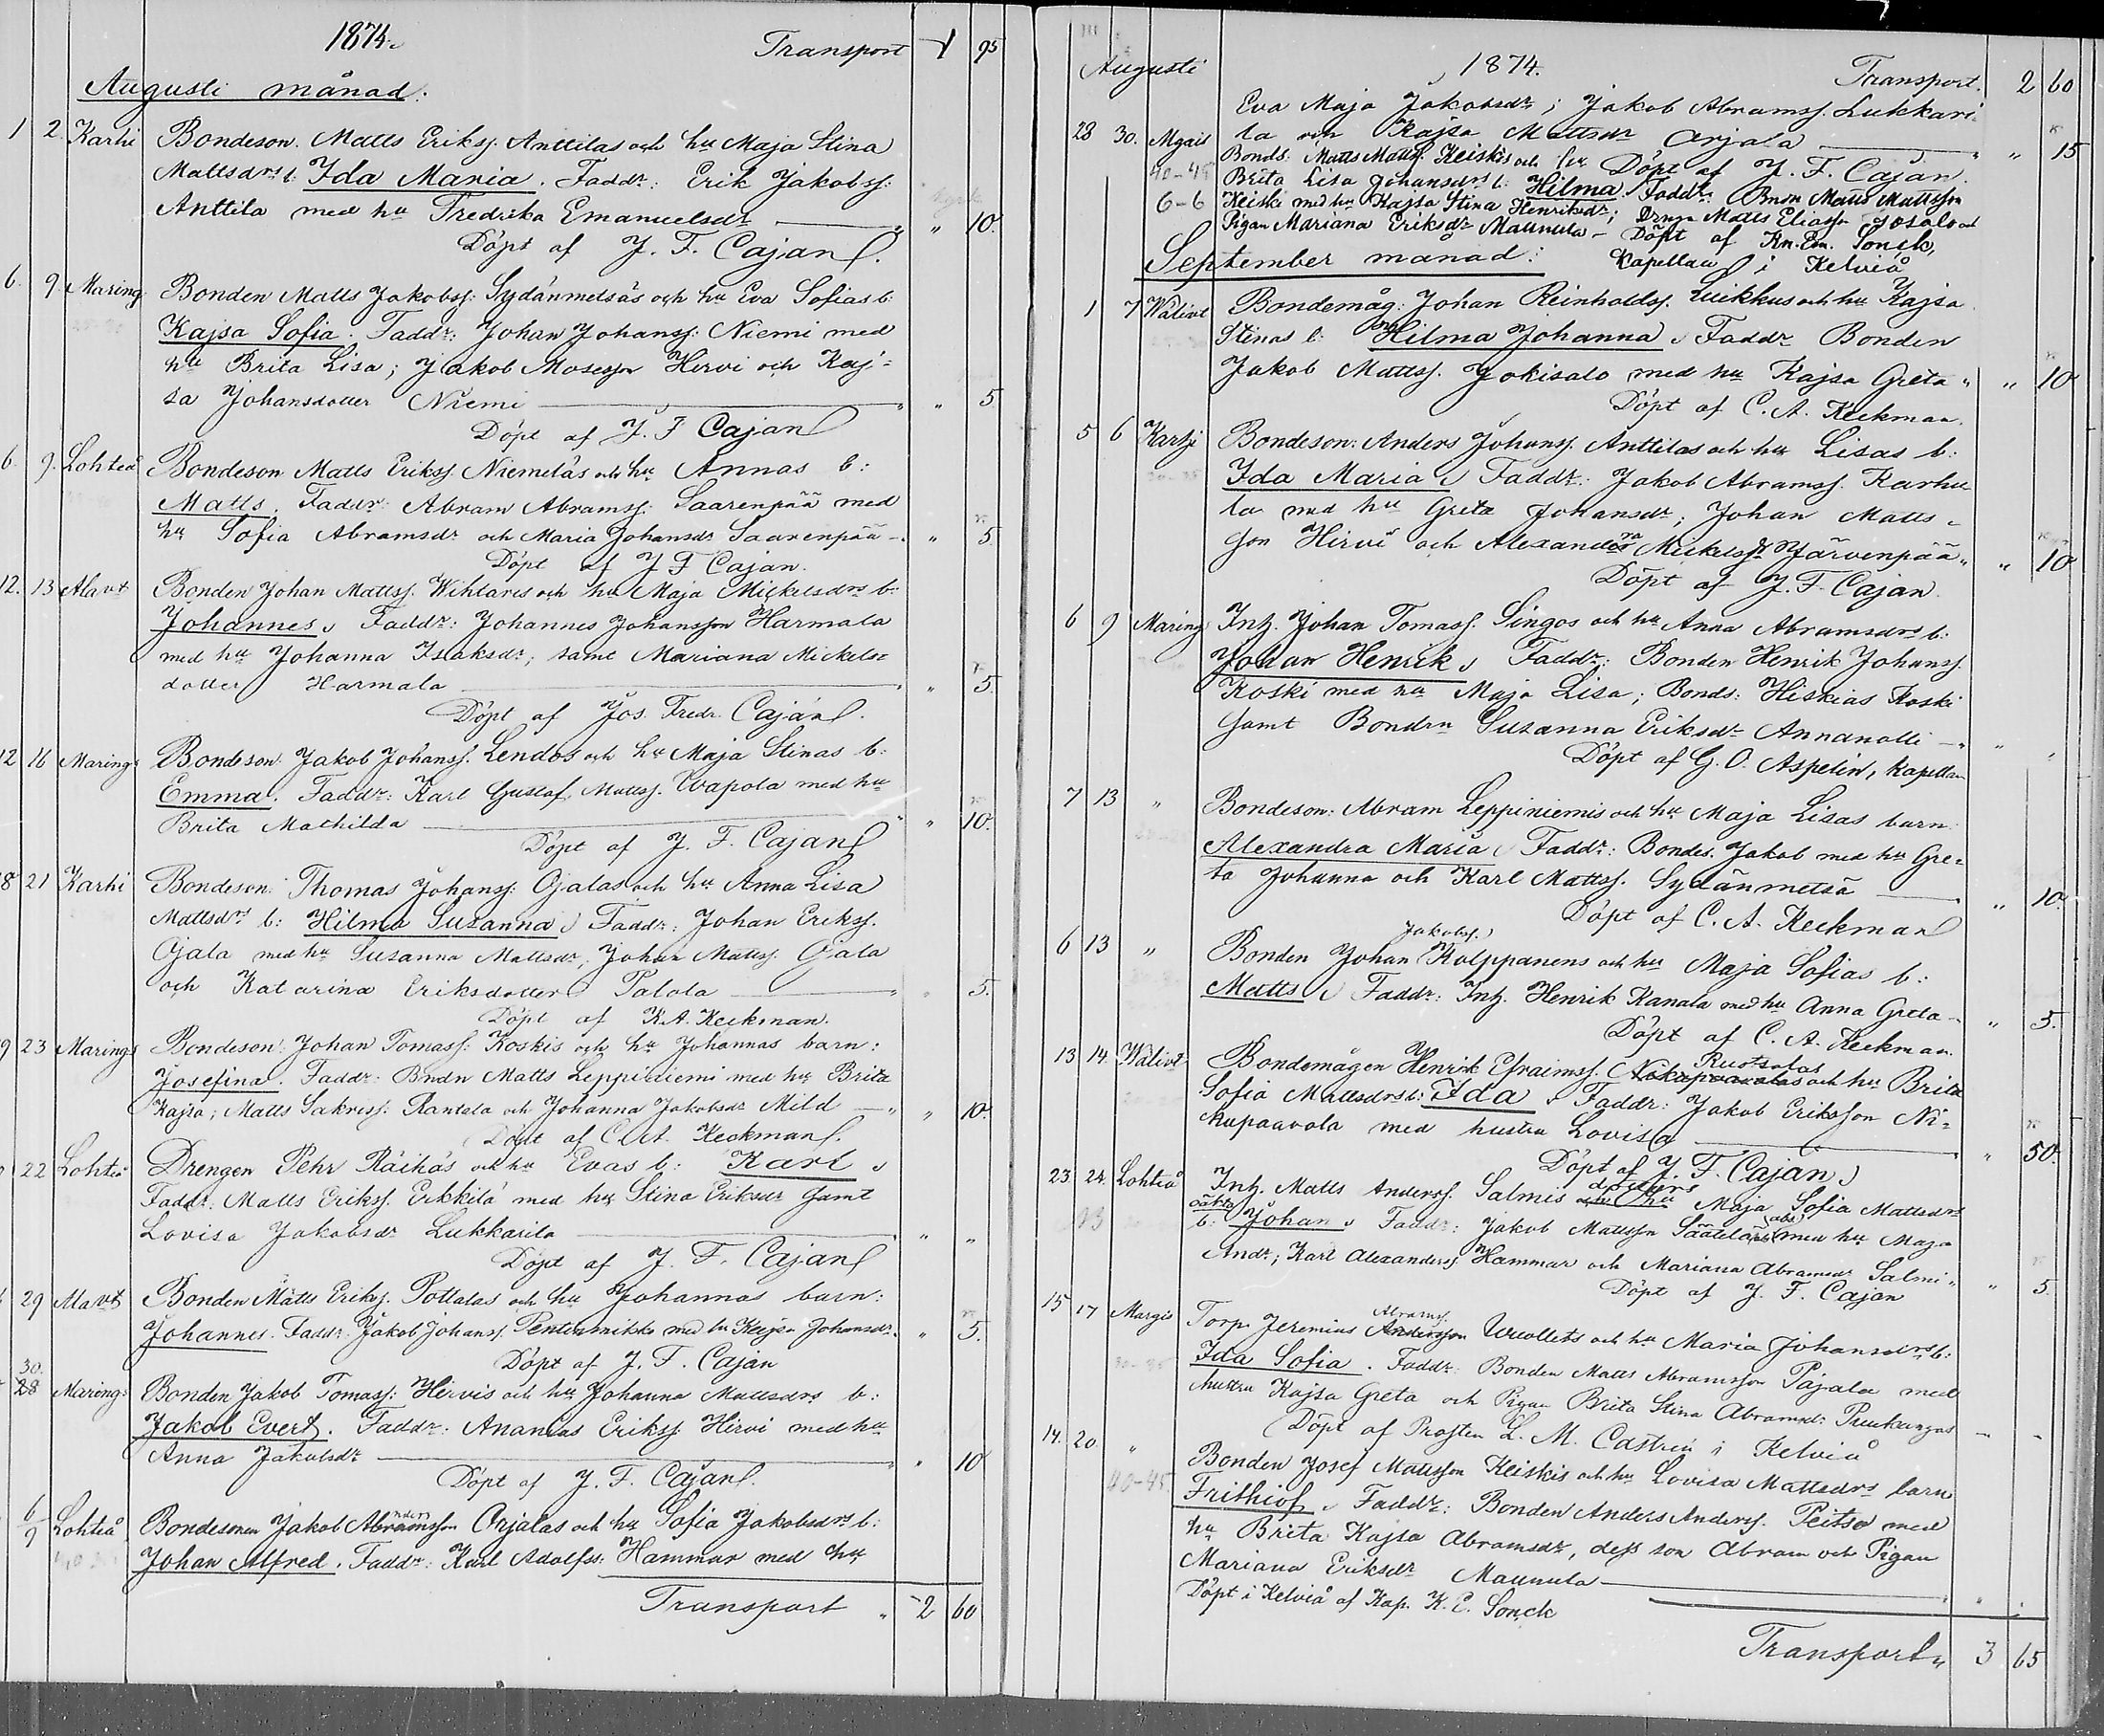 1874.
Transport 1 95
Augusti månad.
1 2 Karhi Bondeson. Matts Erikss. Anttilas och hu Maja Stina
Mattsdrs b. Ida Maria. Faddr: Erik Jakobss:
Anttila med hu Fredrika Emanuelsdr " " 10.
Döpt af J. F. Cajan.
6. 9. Maring Bonden Matts Jakobss: Sydänmetsäs och hu Eva Sofias b:
Kajsa Sofia. Faddr: Johan Johanss: Niemi med
hu Brita Lisa; Jakob Mosesson Hirvi och Kaj-
sa Johansdotter Niemi " " 5
Döpt af J. F Cajan
6. 9. Lohteå Bondeson Matts Erikss. Niemeläs och hu Annas b:
Matts. Faddr: Abram Abramss: Saarenpää med
hu Sofia Abramsdr och Maria Johansdr Saarenpää " 5.
Döpt af J F Cajan.
12. 13 Alavt Bonden Johan Mattss. Wihlares och hu Maja Mickelsdrs b:
Johannes. Faddr: Johannes Johansson Harmala
med hu Johanna Isaksdr; samt Mariana Mickels-
dotter Harmala " " 5.
Döpt af Jos. Fredr. Cajan.
12 16 Marings Bondeson Jakob Johanss. Lendos och hu Maja Stinas b:
Emma. Faddr: Karl Gustaf Mattss. Wapola med hu
Brita Mathilda " " 10.
Döpt af J. F. Cajan
8 21 Karhi Bondeson: Thomas Johanss: Ojalas och hu Anna Lisa
Mattsdrs b: Hilma Susanna. Faddr: Johan Erikss.
Ojala med hu Susanna Mattsdr, Johan Mattss. Ojala
och Katarina Eriksdotter Palola " " 5.
Döpt af K.A. Keckman.
9 23 Marings Bondeson: Johan Tomass: Koskis och hu Johannas barn:
Josefina. Faddr: Bndn Matts Leppiniemi med hu Brita
Kajsa; Matts Sakriss. Rantala och Johanna Jakobsdr Mild " " 10.
Döpt af C. A. Keckman.
22 Lohteå Drengen Pehr Räihäs och hu Evas b: Karl.
Faddr: Matts Erikss. Erkkilä med hu Stina Eriksdr samt
Lovisa Jakobsdr Lukkarila " "
Döpt af J. F. Cajan
29 Alavt Bonden Matts Erikss. Pottalas och hu Johannas barn:
Johannes. Faddr: Jakob Johanss. Pentinmikko med hu Kajsa Johansdr. " 5.
Döpt af J. F. Cajan
30.
28 Marings Bonden Jakob Tomass: Hirvis och hu Johanna Mattsdrs b:
Jakob Evert. Faddr: Ananias Erikss: Hirvi med hu
Anna Jakobsdr " " 10
Döpt af J. F. Cajan.
6/9 Lohteå Bondesonen Jakob Abramsson Orjalas och hu Sofia Jakobsdrs b:
Johan Alfred. Faddr: Karl Adolfss: Hammar med hu
Transport " 2 60
Augusti 1874. Transport. 2 60
Eva Maja Jakobsdr; Jakob Abramss. Lukkari
la och Kajsa Mattsdr Orjala " " 15
Döpt af J. F. Cajan.
28 30. Mgais Bonds: Matts Mattss: Keiskis och hu
40-45 Brita Lisa Johansdrs b: Hilma. Faddr: Bnsn Matts Mattsson
6-6 Keiski med hu Kajsa Stina Henriksdr; Drngn Matts Eliasson Josalo och
Pigan Mariana Eriksdr Maunula - Döpt af Kn. Em. Sonck,
Kapellan i Kelviå
September månad:
1 7 Wälivt Bondemåg: Johan Reinholdss. Luikkus och hu Kajsa
Stinas b: Hilma Johanna. Faddr Bonden
Jakob Mattss. Jokisalo med hu Kajsa Greta " " 10
Döpt af C. A. Keckman.
5 6 Karhi Bondeson: Anders Johanss. Anttilas och hu Lisas b:
Ida Maria. Faddr: Jakob Abramss. Karhu
la med hu Greta Johansdr; Johan Matts-
son Hirvi och Alexandra Mickelsdr Järvenpää " " 10
Döpt af J. F. Cajan.
6 9 Maring Inh. Johan Tomass. Singos och hu Anna Abramsdrs b:
Johan Henrik. Faddr: Bonden Henrik Johanss.
Koski med hu Maja Lisa; Bonds: Hiskias Koski
samt Bondrn Susanna Eriksdr Annanolli " " "
Döpt af G. O. Aspelin, kapellan
7 13 " Bondeson: Abram Leppiniemis och hu Maja Lisas barn
Alexandra Maria. Faddr: Bondes. Jakob med hu Gre-
ta Johanna och Karl Mattss. Sydänmetsä " 10.
Döpt af C. A. Keckman
6 13 " Bonden Johan Jakobss. Kolppanens och hu Maja Sofias b:
Matts. Faddr: Inh. Henrik Kanala med hu Anna Greta " 5.
Döpt af C. A. Keckman.
13 14. Wälivt Bondemågen Henrik Efraimss. Nikupaavolas Ruotsalas och hu Brita
Sofia Mattsdrs b: Ida. Faddr: Jakob Eriksson Ni-
kupaavola med hustru Lovisa " 50.
Döpt af J. F. Cajan
23. 24. Lohteå Inh. Matts Anderss. Salmis och hu dotters Maja Sofia Mattsdrs
oäkta b: Johan. Faddr: Jakob Mattsson Säätelä med hu Maja
Andr; Karl Alexanderss Hammar och Mariana Abramsdr Salmi " " 5.
Döpt af J. F. Cajan
15 17 Margis Torp. Jeremias Andersson Abramss. Wuollets och hu Maria Johansdrs b:
Ida Sofia. Faddr. Bonden Matts Abramsson Pajala med
hustru Kajsa Greta och Pigan Brita Stina Abramsd:
Döpt af Prosten L. M. Castrén i Kelviå
14. 20. " Bonden Josef Mattsson Keiskis och hu Lovisa Mattsdrs barn
40-45 Frithiof. Faddr: Bonden Anders Anderss. Peitso med
hu Brita Kajsa Abramsdr, dess son Abram och Pigan
Mariana Eriksdr Maunula
Döpt i Kelviå af Kap. K. E. Sonck
Transport " 3 65